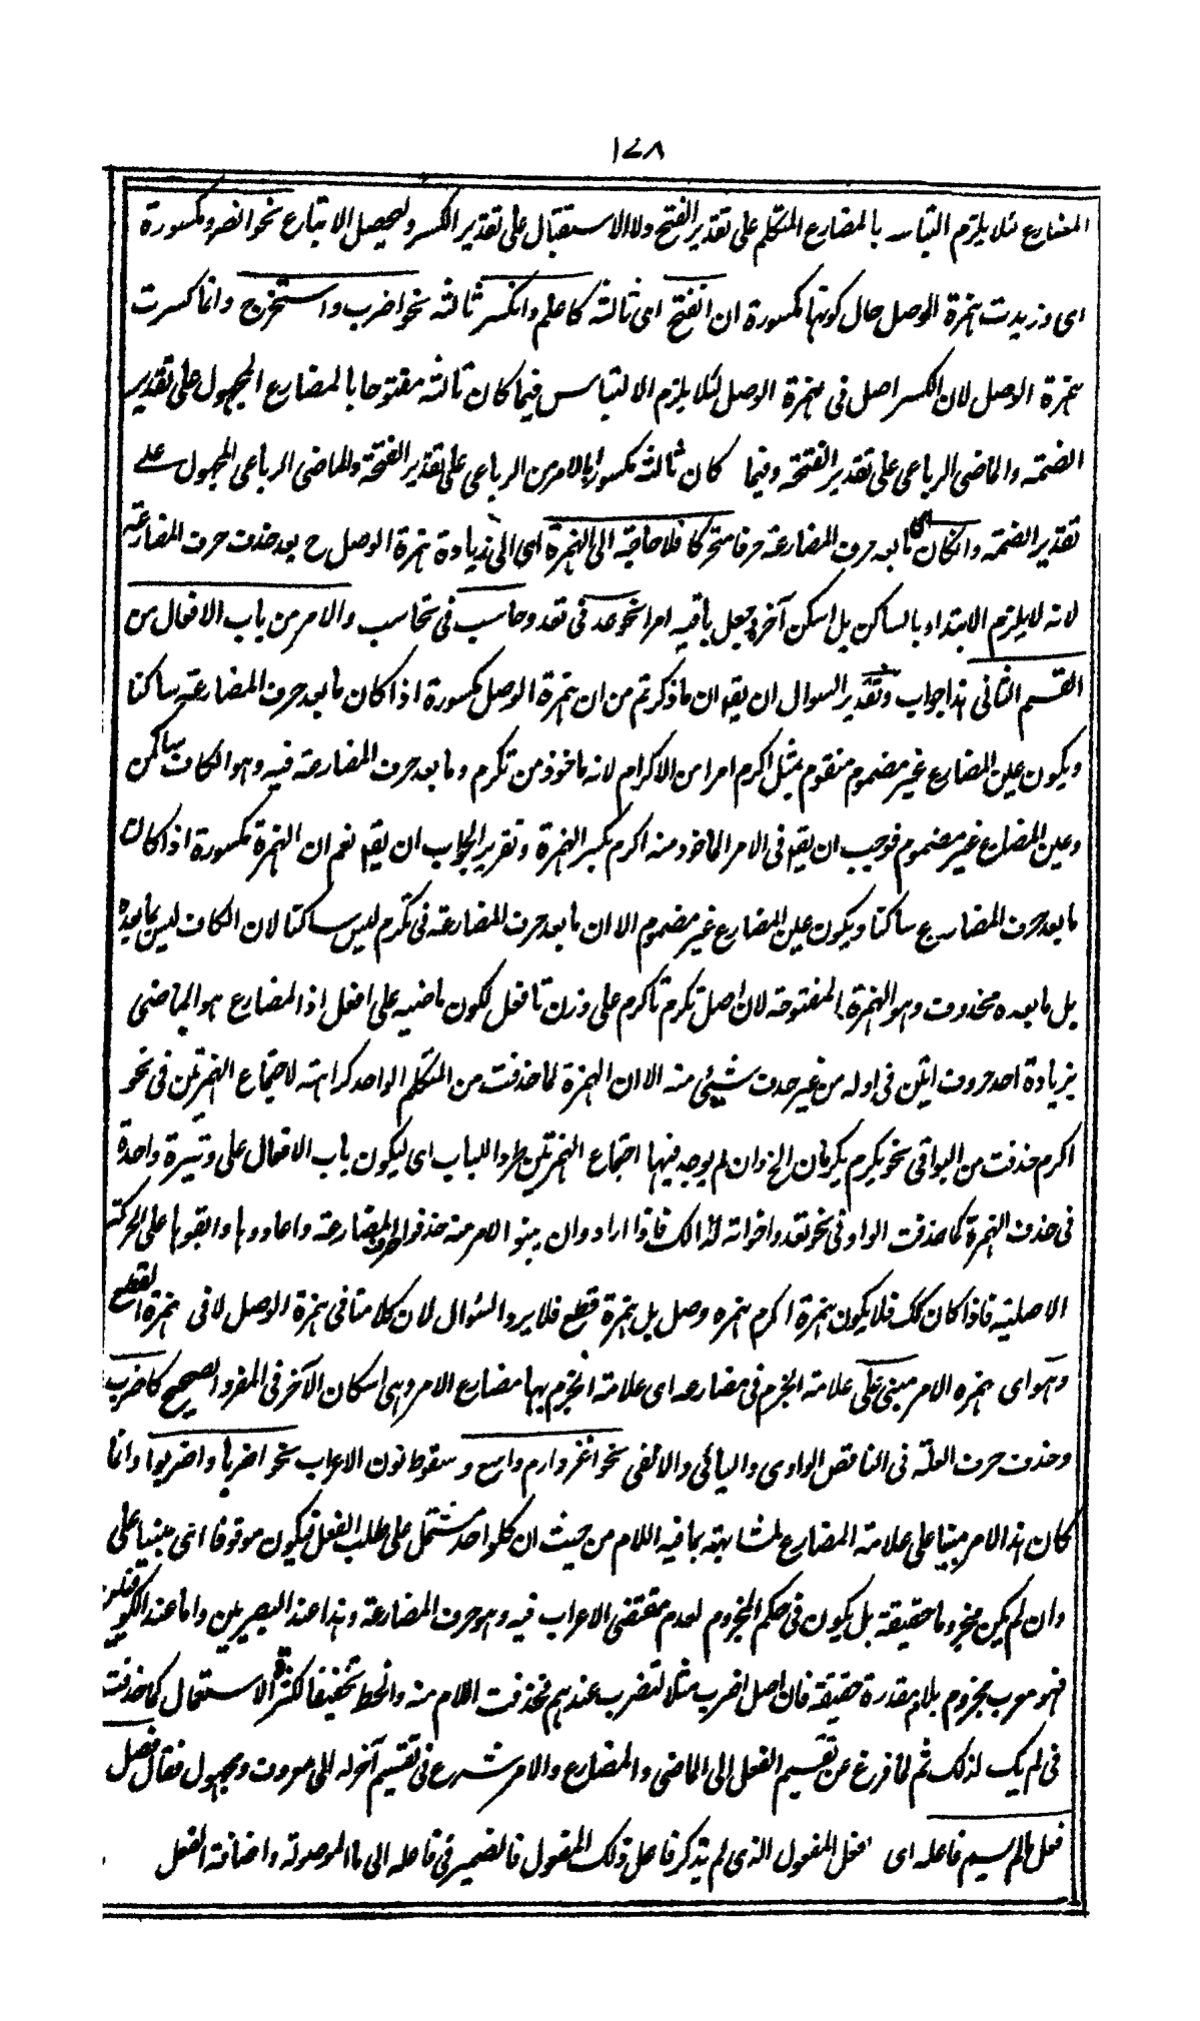 ١٧٨
المضارع لئلا يلزم التباسه بالمضارع المتكلم على تقدير الفتح ولا الاستقبال على تقدير الكسر وليحصل الاتباع نحو انصر ومكسورة
اى وزيدت همزة الوصل حال كونها مكسورة ان انفتح اى ثالثه كاعلم وانكسر ثالثه نحو اضرب واستخرج وانما كسرت
همزة الوصل لان الكسر اصل فى همزة الوصل لئلا يلزم الالتباس فيما كان ثالثه مفتوحا بالمضارع المجهول على تقدير
الضمة والماضى الرباعى على تقدير الفتحة وفيما كان ثالثه مكسورا بالامر من الرباعى على تقدير الفتحة وللماضى الرباعى المجهول على
تقدير الضمة وان كان اى ما بعد حرف المضارعة حرفا متحركا فلا حاجة الى الهمزة اى الى زيادة همزة الوصل ح بعد حذف حرف المضارعة
لانه لا يلزم الابتداء بالساكن بل اسكن آخره يجعل باقيه امرا نحو عد فى تعد وحاسب فى تحاسب والامر من باب الافعال من
القسم الثانى هذا جواب وتقدير السوال ان يقه ان ما ذكرتم من ان همزة الوصل مكسورة اذا كان ما بعد حرف المضارعة ساكنا
ويكون عين المضارع غير مضموم منقوم بمثل اكرم امرا من الاكرام لانه ماخوذ من تكرم وما بعد حرف المضارعة فيه وهو الكاف ساكن
وعين المضارع غير مضموم فوجب ان يقه فى الامر الماخوذ منه اكرم بكسر الهمزة وتقرير الجواب ان يقه نعم ان الهمزة مكسورة اذا كان
ما بعد حرف المضارع ساكنا ويكون عين المضارع غير مضموم الا ان ما بعد حرف المضارعة فى تكرم ليس ساكنا لان الكاف ليس بما بعده
بل ما بعده محذوف وهو الهمزة المفتوحة لان اصل تكرم تأكرم على وزن تافعل لكون ماضيه على افعل اذ المضارع هو الماضى
بزيادة احد حروف اتين فى اوله من غير حذف شيئ منه الا ان الهمزة لما حذفت من المتكلم الواحد كراهته لاجتماع الهمزتين فى نحو
اكرم حذفت من البواقى نحو يكرم يكرمان الخ وان لم يوجد فيها اجتماع الهمزتين طردا للباب اى ليكون باب الافعال على وتيرة واحدة
فى حذف الهمزة كما حذفت الواو فى نحو تعد واخواته لذالك فاذا ارادوان يبنو الامر منه حذفوا حرف المضارعة واعادوها وابقوها على الحركة
الاصلية فاذا كان كك فلا يكون همزة اكرم همزه وصل بل همزة قطع فلا يرد السئوال لان كلامنا فى همزة الوصل لا فى همزة القطع
وهو اى همزه الامر مبنى على علامة الجزم فى مضارعه اى علامة انجزم بها مضارع الامر وهى اسكان الآخر فى المفرد الصحيح كاضرب
وحذف حرف العلة فى الناقص الواوى واليائى والالفى نحو اغز وارم واسع وسقوط نون الاعراب نحو اضربا واضربوا وانما
كان هذا الامر مبنيا على علامة المضارع لمشابهته بما فيه اللام من حيث ان كلواحد مشتمل على طلب الفعل فيكون موقوفا اى مبنيا على
وان لم يكن مجزوما حقيقة بل يكون فى حكم المجزوم لعدم مقتضى الاعراب فيه وهو حرف المضارعة وهذا عند البصريين واما عند الكوفيين
فهو معرب مجزوم بلام مقدرة حقيقة فان اصل اضرب مثلا لتضرب عندهم فحذفت اللام منه وانحط تخفيفا لكثرة الاستعمال كما حذفت
فى لم يك لذلك ثم لما فرغ من تقسيم الفعل الى الماضى والمضارع والامر شرع فى تقسيم آخر له الى معروف ومجهول فقال فصل
فعل ما لم يسم فاعله اى فعل المفعول الذى لم يذكر فاعل ذلك المفعول فالضمير فى فاعله الى ما الموصولة واضافة الفعل